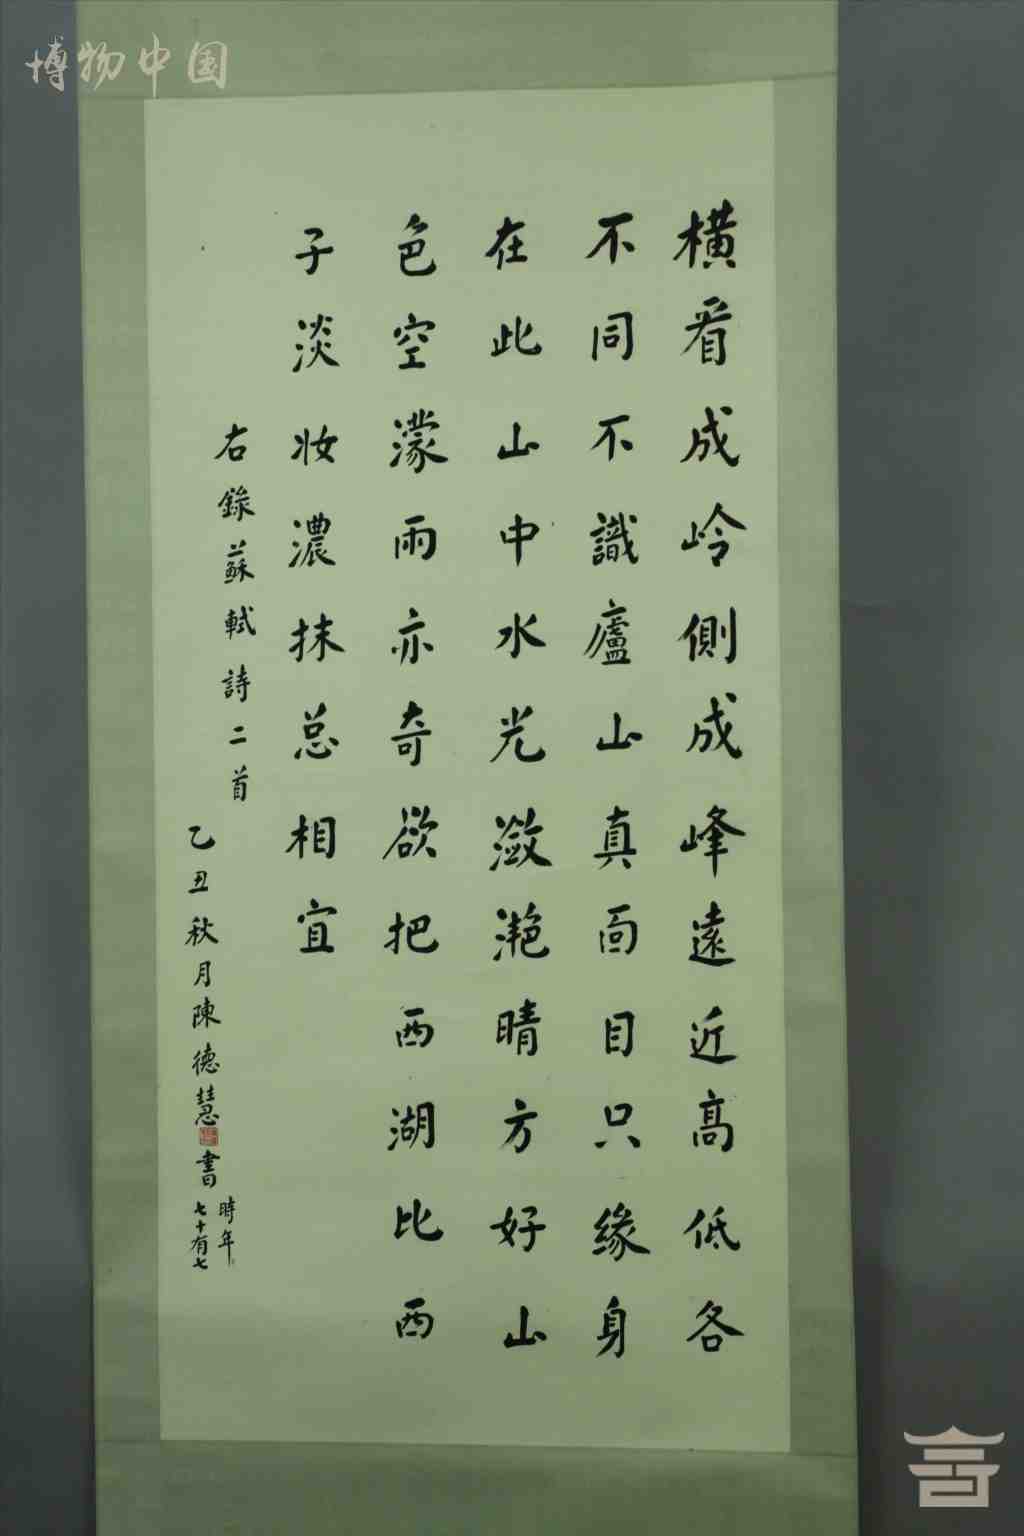 博物中国
橫看成岭側成峰遠近高低各
不同不識廬山真面目只緣身
在此山中水光潋滟晴方好山
色空濛雨亦奇欲把西湖比西
子淡妝濃抹总相宜
右錄蘇軾詩二首
乙丑秋月陳德慧書
時年
七十有七